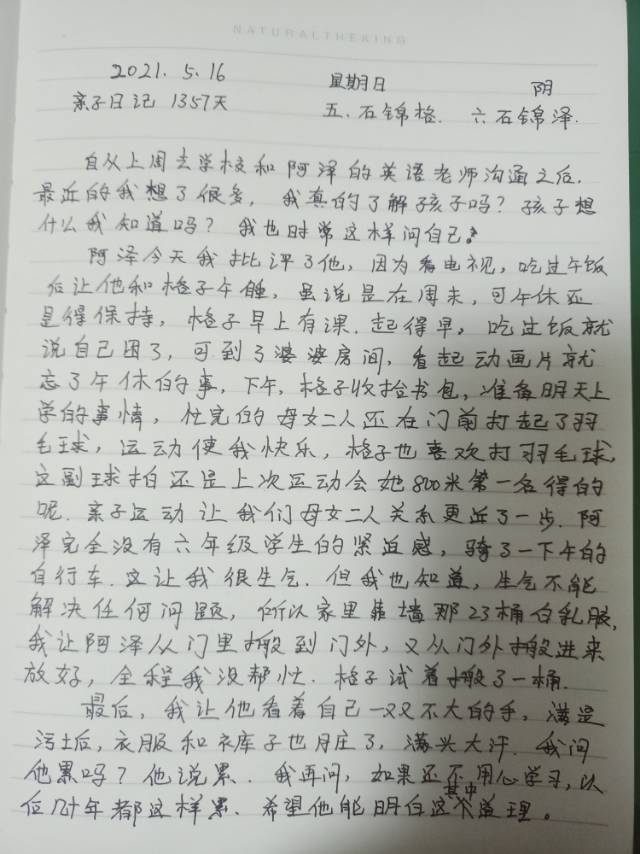 NATURALTHEKING
2021. 5. 16 星期日 阴
亲子日记 1357天 五.石锦格. 六石锦泽.
自从上周去学校和阿泽的英语老师沟通之后.
最近的我想了很多, 我真的了解孩子吗? 孩子想
什么我知道吗? 我也时常这样问自己.
阿泽今天我批评了他, 因为看电视, 吃过午饭
后让他和格子午睡, 虽说是在周末, 可午休还
是得保持, 格子早上有课. 起得早, 吃过饭就
说自己困了, 可到了婆婆房间, 看起动画片就
忘了午休的事, 下午, 格子收拾书包, 准备明天上
学的事情, 忙完的母女二人还在门前打起了羽
毛球, 运动使我快乐, 格子也喜欢打羽毛球,
这副球拍还是上次运动会她800米第一名得的
呢. 亲子运动让我们母女二人关系更近了一步. 阿
泽完全没有六年级学生的紧迫感, 骑了一下午的
自行车. 这让我很生气. 但我也知道, 生气不能
解决任何问题, 所以家里靠墙那23桶白乳胶,
我让阿泽从门里搬到门外, 又从门外搬进来
放好, 全程我没帮忙. 格子试着搬了一桶.
最后, 我让他看着自己一双不大的手, 满是
污土后, 衣服和裤子也脏了, 满头大汗. 我问
他累吗? 他说累. 我再问, 如果还不用心学习, 以
后几十年都这样累. 希望他能明白这其中道理。